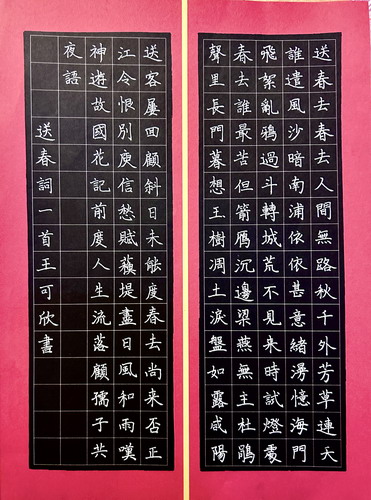 送春去春去人間無路秋千外芳草連天
誰遣風沙暗南浦依依甚意緒漫憶海門
飛絮亂鴉過斗轉城荒不見來時試燈處
春去誰最苦但箭雁沉邊梁燕無主杜鵑
聲里長門暮想玉樹凋土淚盤如露咸陽
送客屢回顧斜日未能度春去尚來否正
江令恨別庾信愁賦蘇堤盡日風和雨嘆
神遊故國花記前度人生流落顧孺子共
夜語
送春詞一首王可欣書